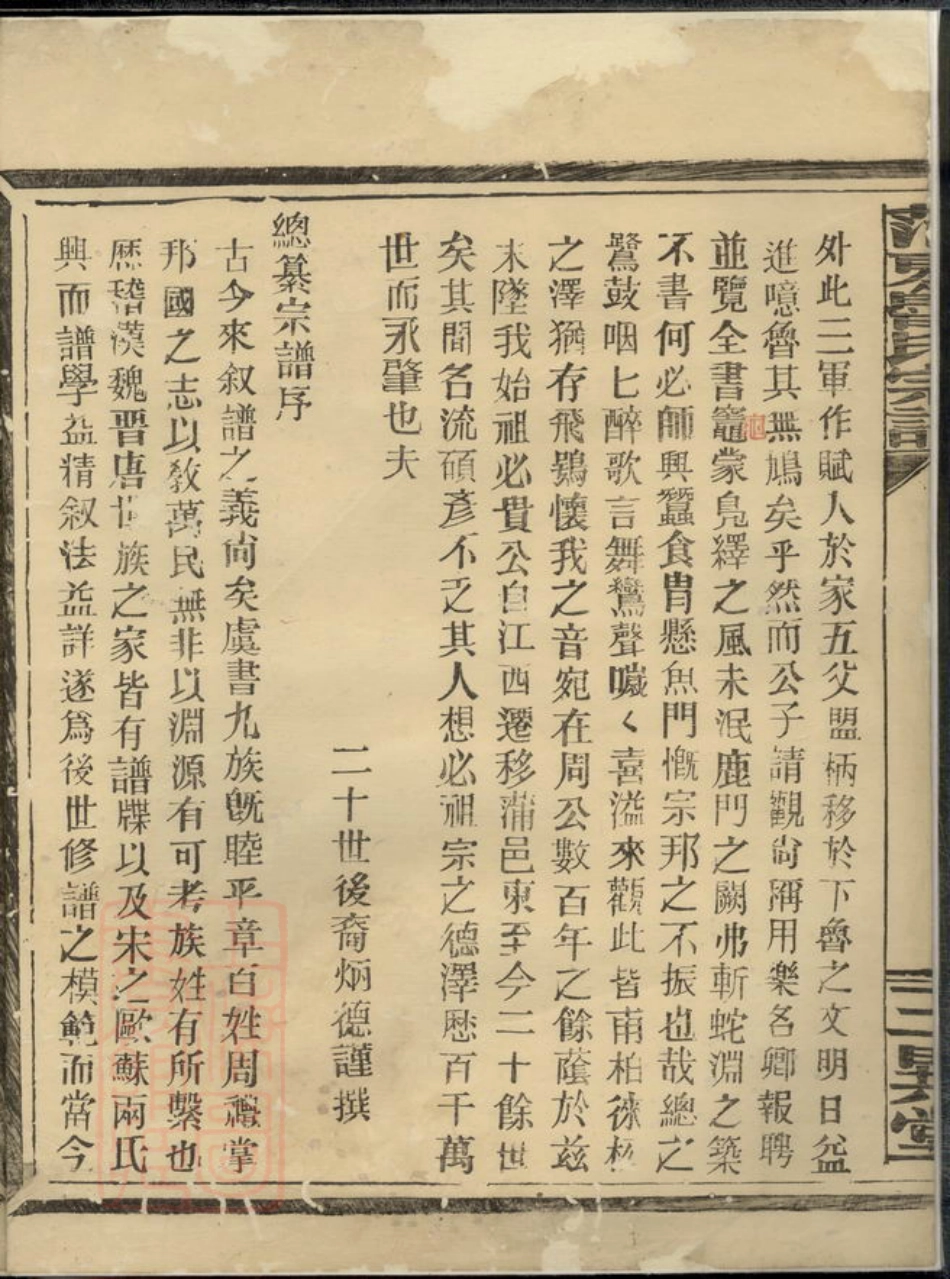 外此三軍作賦人於家五父盟柄移於下魯之文明日益
進噫魯其無鳩矣乎然而公子請觀尙稱用樂名卿報聘
並覽全書龜蒙鳧繹之風未泯鹿門之闕弗斬蛇淵之築
不書何必師興蠶食胄懸魚門慨宗邦之不振也哉總之
鷺鼓咽匕醉歌言舞鸞聲噦く喜溢來觀此皆甫柏徠松
之澤猶存飛鴞懷我之音宛在周公數百年之餘蔭於茲
未墜我始祖必貴公自江西遷移蒲邑東至今二十餘世
矣其間名流碩彥不乏其人想必祖宗之德澤歷百千萬
世而永肇也夫
二十世後裔炳德謹撰
總纂宗譜序
古今來叙譜之義尙矣虞書九族旣睦平章百姓周禮掌
邦國之志以敎萬民無非以淵源有可考族姓有所繫也
歷稽漢魏晋唐世族之家皆有譜牒以及宋之歐蘇兩氏
興而譜學益精叙法益詳遂爲後世修譜之模範而當今